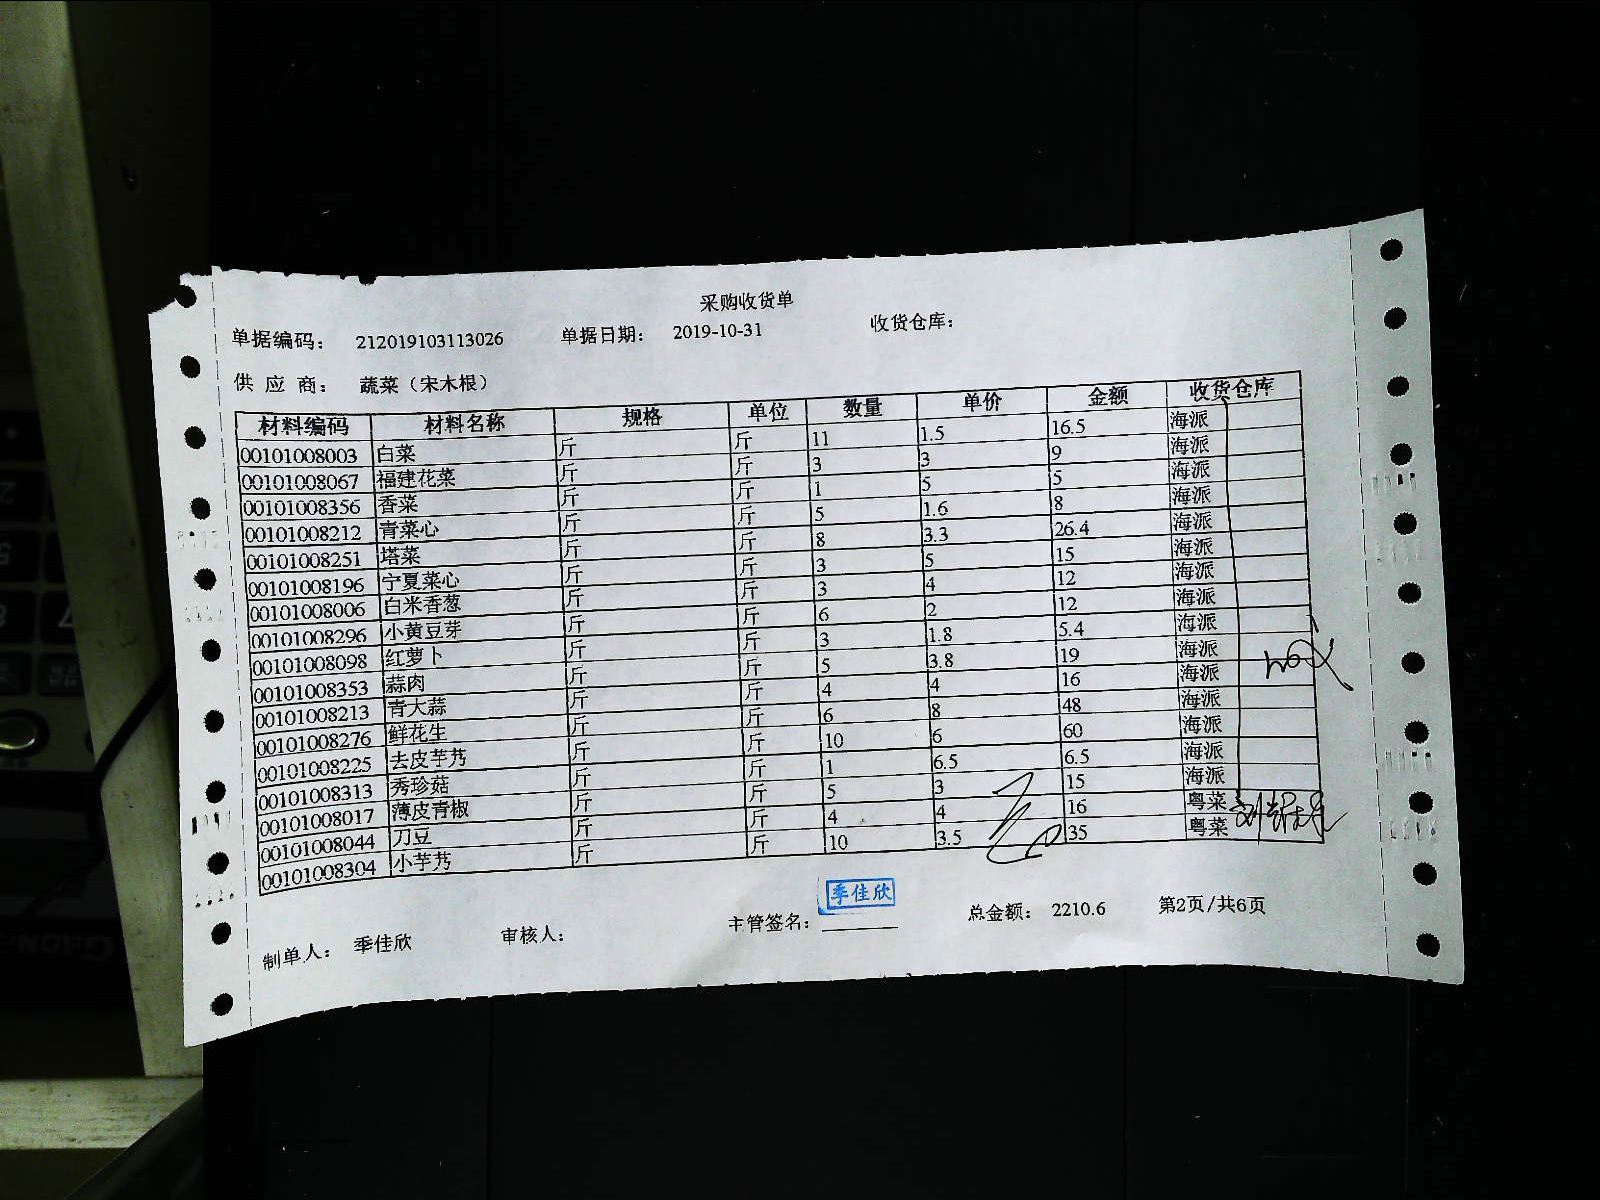 采购收货单
单据编码： 212019103113026 单据日期： 2019-10-31 收货仓库：
供 应 商： 蔬菜（宋木根）
材料编码 材料名称 规格 单位 数量 单价 金额 收货仓库
00101008003 白菜 斤 斤 11 1.5 16.5 海派
00101008067 福建花菜 斤 斤 3 3 9 海派
00101008356 香菜 斤 斤 1 5 5 海派
00101008212 青菜心 斤 斤 5 1.6 8 海派
00101008251 塔菜 斤 斤 8 3.3 26.4 海派
00101008196 宁夏菜心 斤 斤 3 5 15 海派
00101008006 白米香葱 斤 斤 3 4 12 海派
00101008296 小黄豆芽 斤 斤 6 2 12 海派
00101008098 红萝卜 斤 斤 3 1.8 5.4 海派
00101008353 蒜肉 斤 斤 5 3.8 19 海派
00101008213 青大蒜 斤 斤 4 4 16 海派
00101008276 鲜花生 斤 斤 6 8 48 海派
00101008225 去皮芋艿 斤 斤 10 6 60 海派
00101008313 秀珍菇 斤 斤 1 6.5 6.5 海派
00101008017 薄皮青椒 斤 斤 5 3 15 海派
00101008044 刀豆 斤 斤 4 4 16 粤菜
00101008304 小芋艿 斤 斤 10 3.5 35 粤菜
季佳欣
制单人： 季佳欣 审核人： 主管签名： 总金额： 2210.6 第2页/共6页